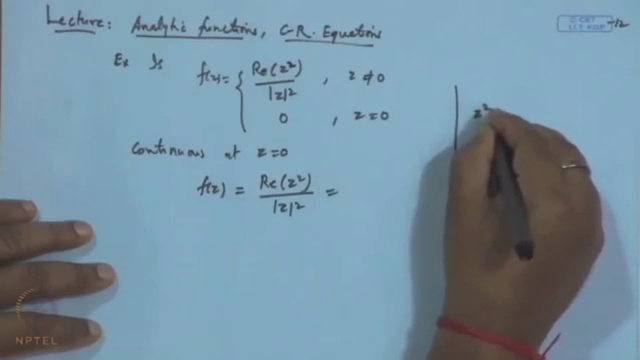 Lecture: Analytic functions, C-R. Equations
© CET
I.I.T. KGP
-12
Ex Is f(z) = { Re(z²) / |z|² , z ≠ 0
0 , z = 0
Continuous at z=0
f(z) = Re(z²) / |z|² =
z²
NPTEL